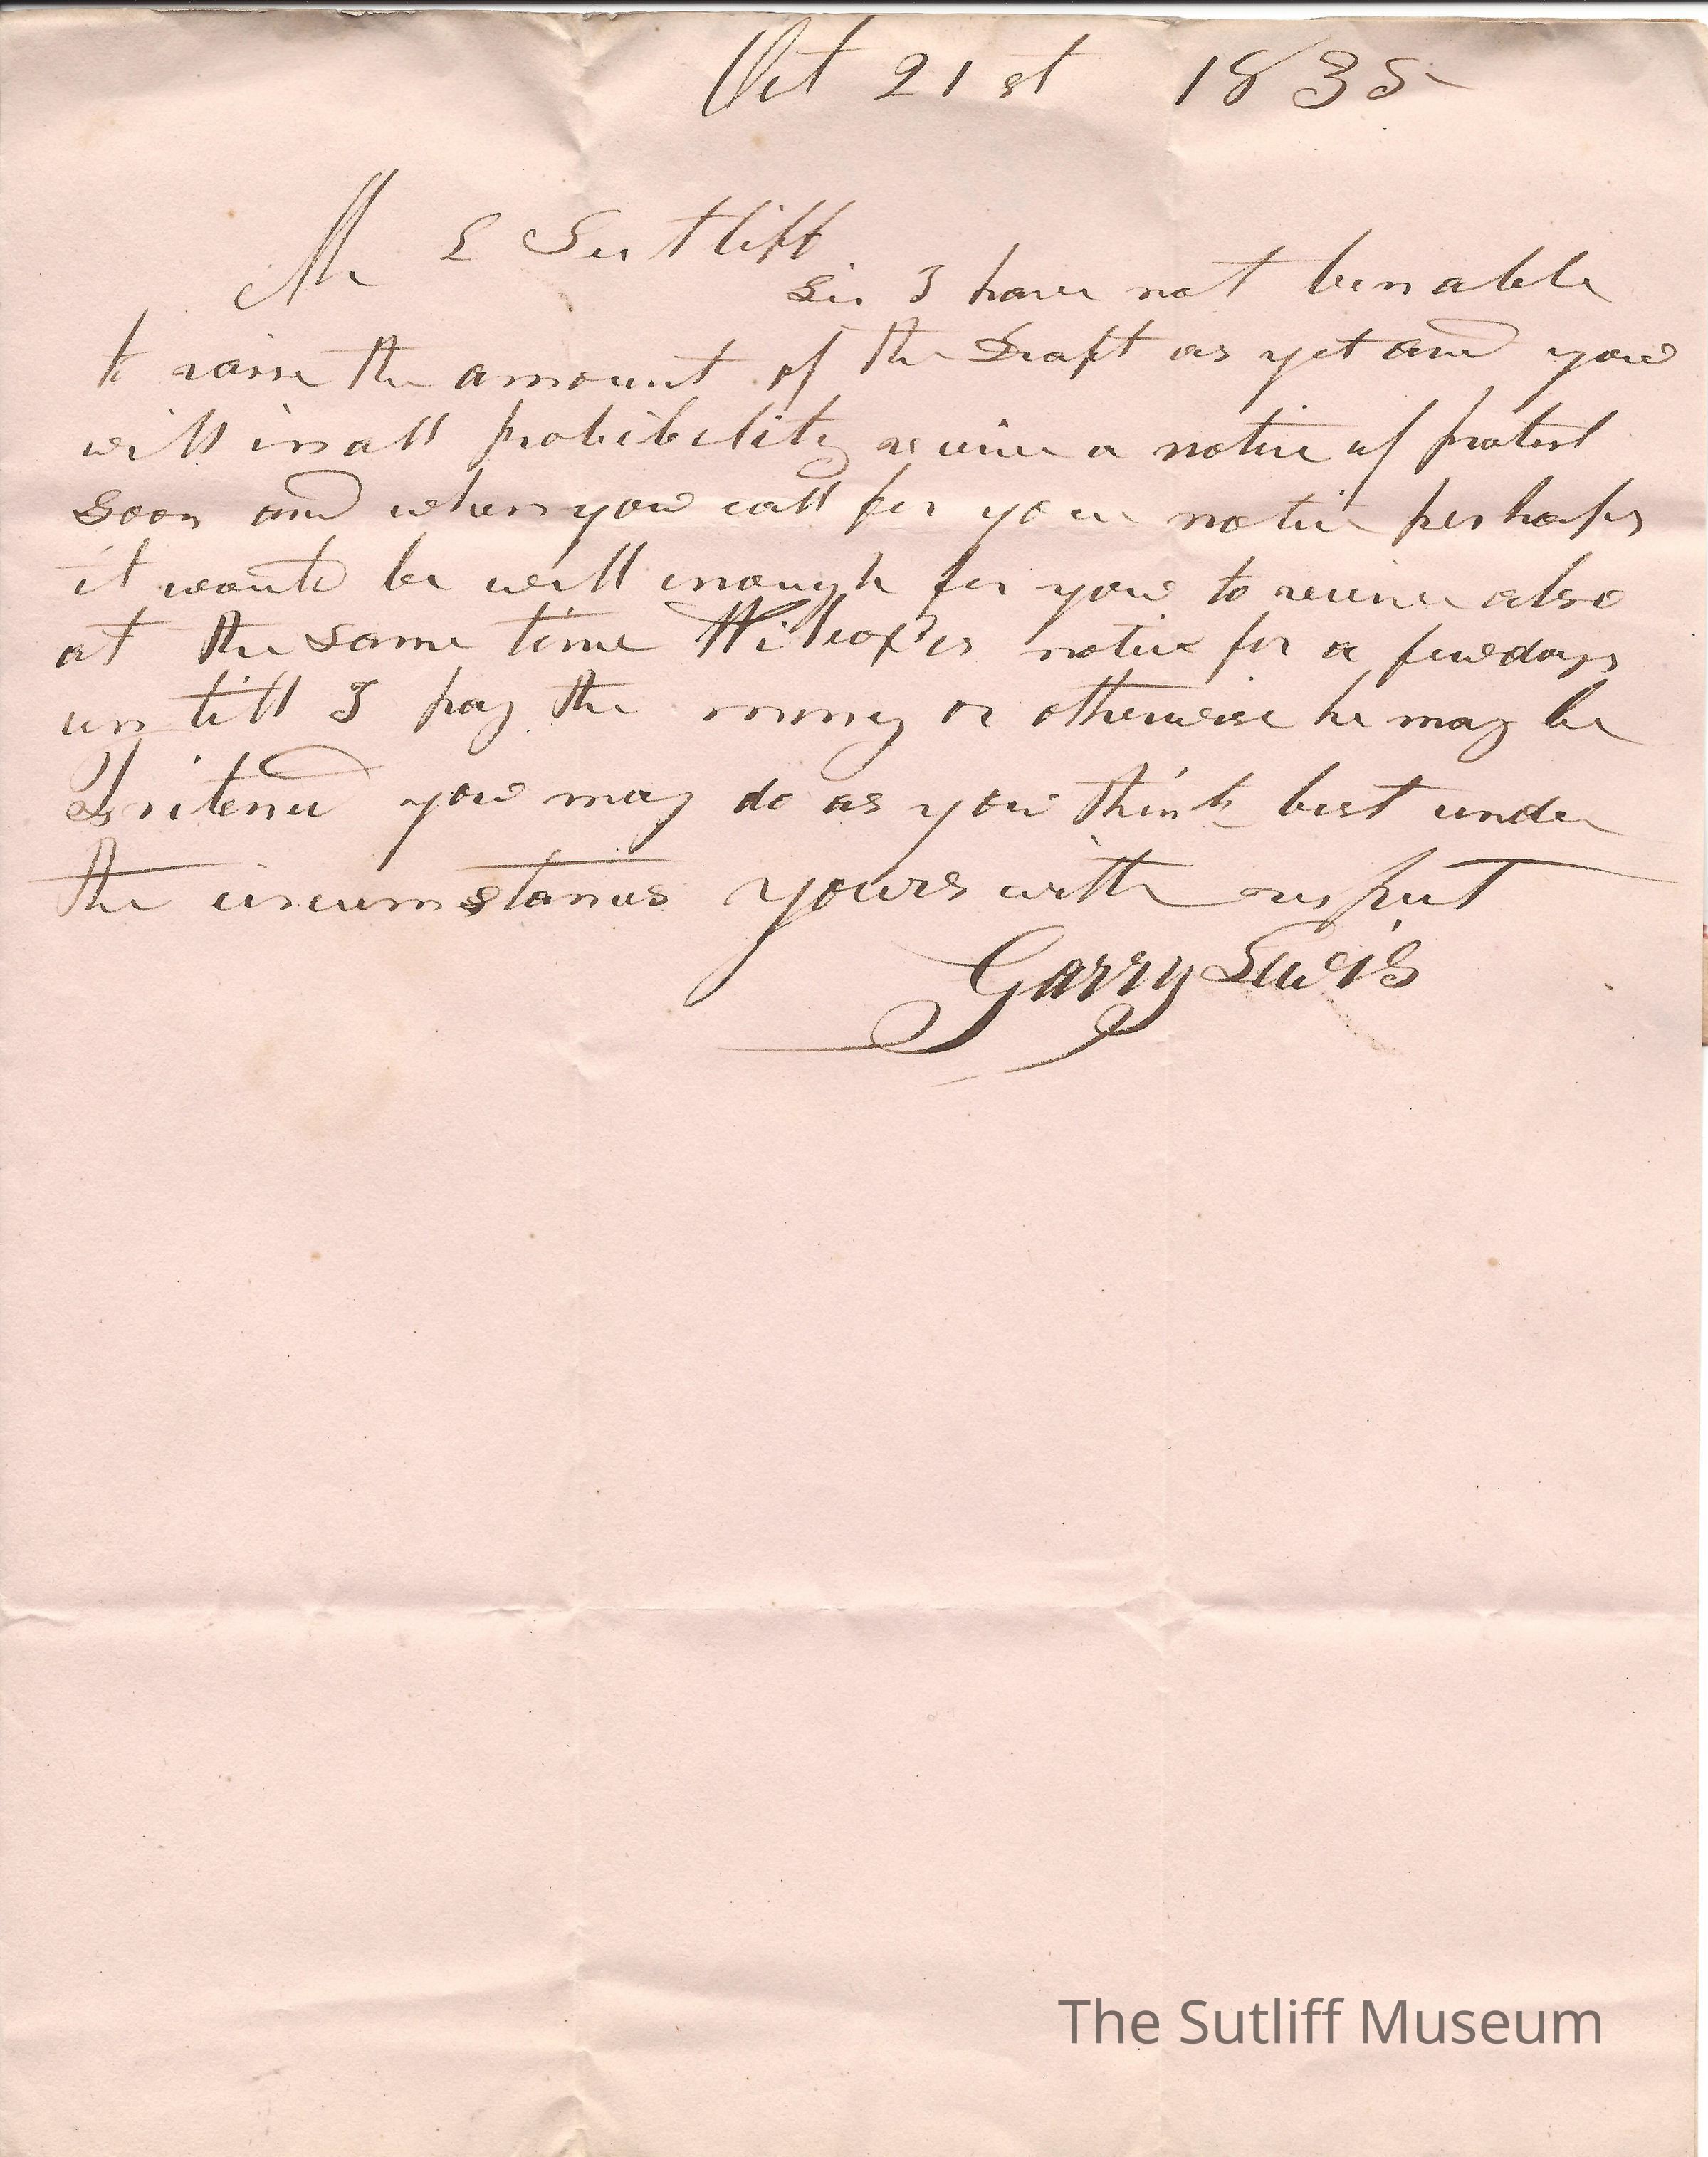 Oct 21st 1835
Mr L Sutliff
Sir I have not ben able
to raise the amount of the Draft as yet and you
will in all probibility receive a notice of protest
soon and when you call for your notice perhaps
it would be well enough for you to receive also
at the same time Wilcox'es notice for a few days
untill I pay the money or otherwise he may be
you may do as you think best under
the circumstances yours with respect
Garry Lewis
The Sutliff Museum